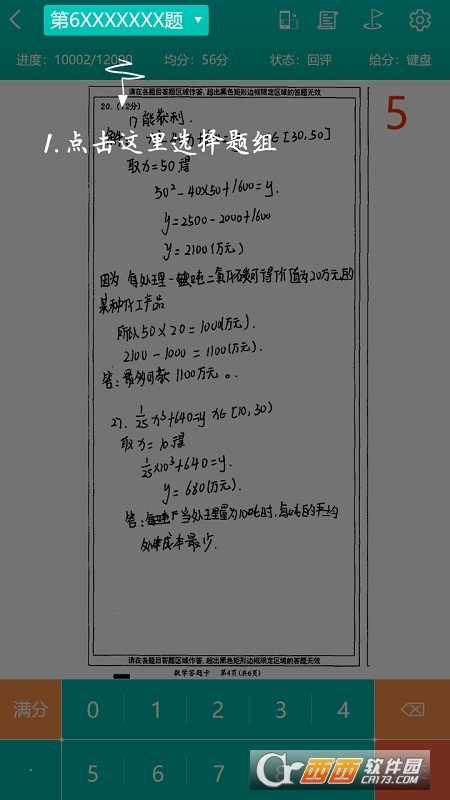 第6XXXXXXX题
进度：10002/12000 均分：56分 状态：回评 给分：键盘
请在各题目答题区域作答，超出黑色矩形边框限定区域的答题无效
5
20. (12分)
1.点击这里选择题组
∈[30,50]
取x=50得
50²-40×50+1600=y.
y=2500-2000+1600
y=2100(万元)
因为 每处理一吨二氧化碳可得价值为20万元的
某种化工产品
所以50×20=1000(万元).
2100-1000=1100(万元).
答：最多可获1100万元。
27. 1/25 x³+640=y x∈[10,30)
取x=10得
1/25×10³+640=y.
y=680(万元).
答：当处理量为100吨时，每吨的平均
处理成本最少.
请在各题目答题区域作答，超出黑色矩形边框限定区域的答题无效
数学答题卡 第4页(共6页)
满分 0 1 2 3 4
· 5 6 7 8
西西软件园
CR173.COM